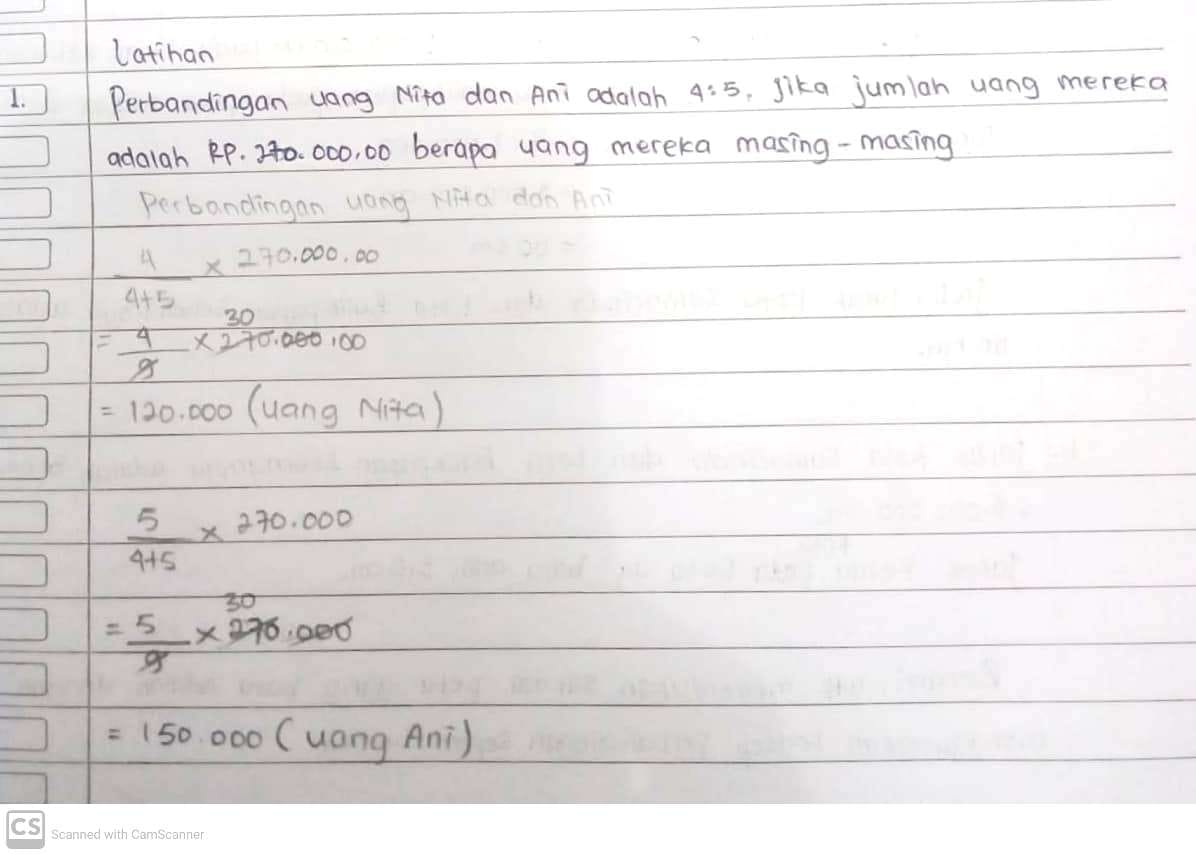 Latihan
1. Perbandingan uang Nita dan Ani adalah 4:5. Jika jumlah uang mereka
adalah RP. 270.000,00 berapa uang mereka masing-masing
Perbandingan uang Nita dan Ani
4 × 270.000.00
4+5
30
= 4 × 270.000,00
9
= 120.000 (uang Nita)
5 × 270.000
4+5
30
= 5 × 270.000
9
= 150.000 (uang Ani)
CS Scanned with CamScanner